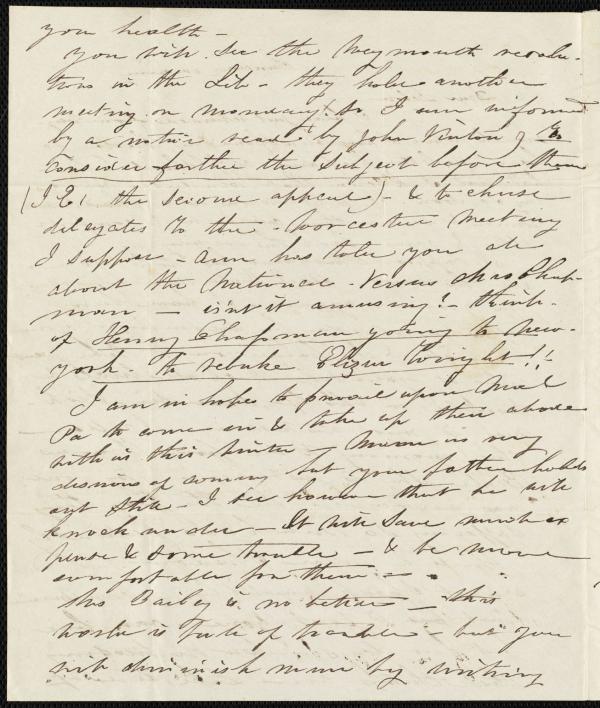 your health -
You will see the Weymouth resolu-
tions in the Lib - they hold another
meeting on monday, so I am informed
by a notice read by John Vinton, to
consider farther the subject before them
(I E, the second appeal) - & to chuse
delegates to the Worcester meeting
I suppose - Ann has told you all
about the National - Versus Mrs Chap-
man - isn't it amusing? - think
of Henry Chapman going to New-
york - To rebuke Elizur Wright!!-
I am in hopes to prevail upon Ma &
Pa to come in & take up their abode
with us this winter - Mum is very
desirous of coming but your father holds
out still - I see however that he will
knock under - It will save much ex
pense & some trouble - & be more
comfortable for them -
Mrs Bailey is no better - this
world is full of trouble - but you
will diminish mine by writing